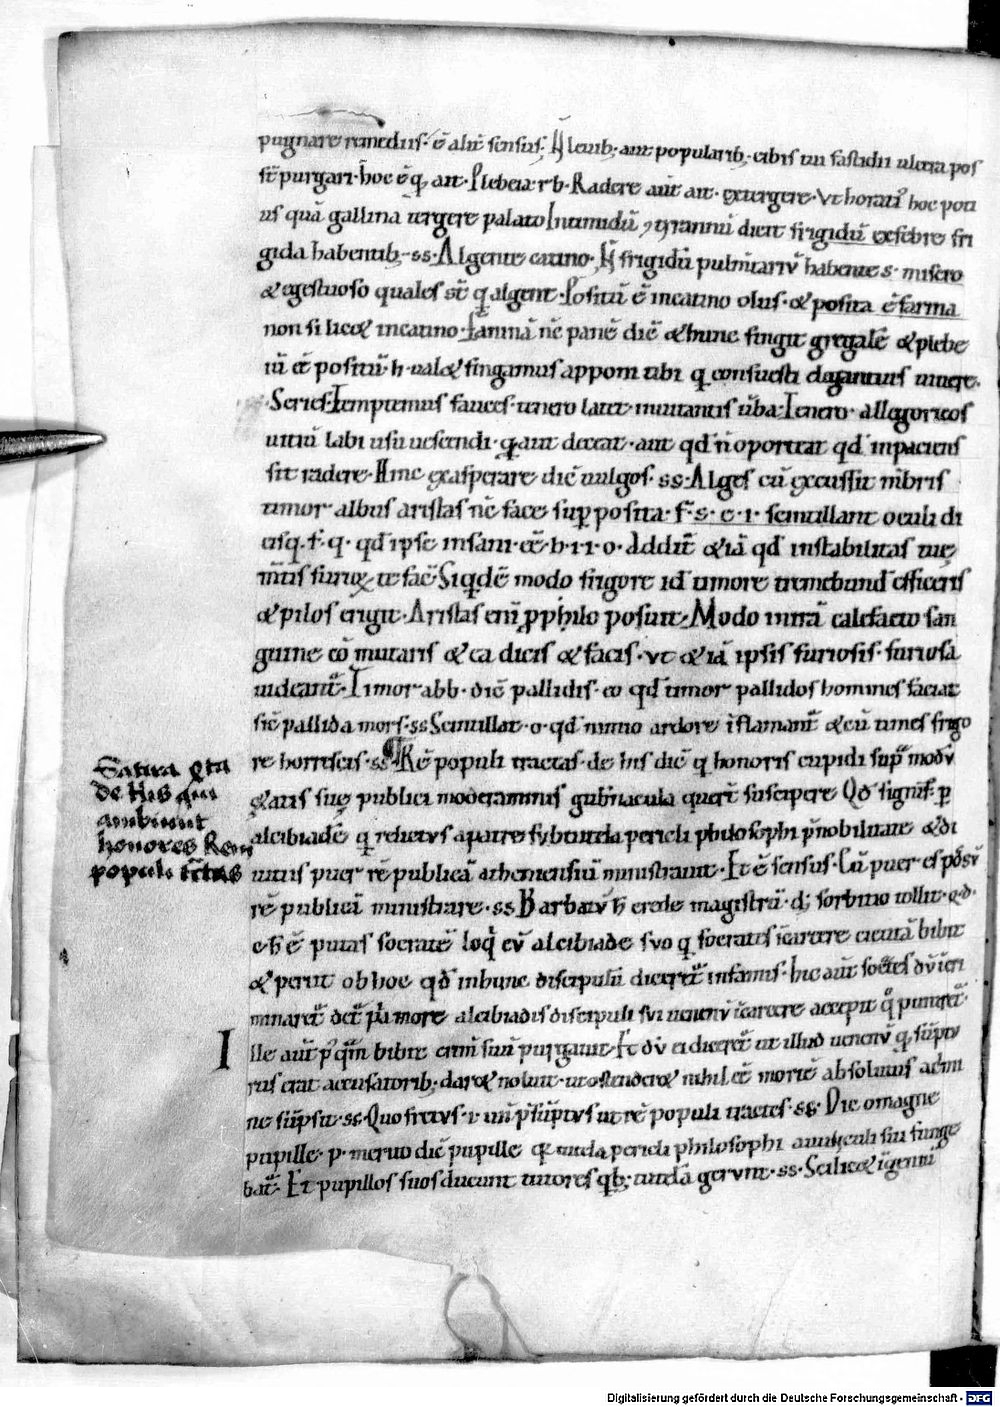 pugnare remediis. ē alit sensus. leuib; aut popularib; cibis ulcera pos
st̄ purgari. hoc ē q ait. Plebeia r b. Radere aut̄ ait. extergere. Vt horati hoc poti
us quā gallina tergere palatū dicit frigidū exfebre fri
gida habentib; ss. Algente catino. frigidū pulmtariū habente s. misero
& egestuoso quales st̄ q algent. Positū ē incatino olus. & posita ē farina
non si lic& incatino. farinā nc̄ panē dic̄ & hunc fingit gregalē & plebe
iū ēē positū. h ual& fingamus apponi tibi q consuesti uiuere.
Series. Temptemus fauces. tenero latet mutantis ūba. Tenero. allegoricos
uitiū labi usu uescendi. aut deceat. aut qd n̄ oporteat qd inpaciens
sit radere. Hinc exasperare dic̄ uulgos. ss. Alges cū excussit m̄bris
timor albus aristas nc̄ face sup posita. f. s. e. i. scintillant oculi di
cisq. f. q. qd ipse insani. ēē. b. i. i. o. Addit̄ &iā qd instabilitas tuę
m̄tis te fac̄ Siqdē modo frigore id timore tremebund efficeris
& pilos erigit. Aristas eni p philo posuit. Modo intrā calefacto san
guine cō mutaris & ea dicis & facis. vt &iā ipsis furiosis. furiosa
uideant̄. Timor abb. dic̄ pallidis. eo qd timor pallidos homines faciat
sic̄ pallida mors. ss Scintillat. o. qd nimio ardore iflamant̄ & cū times frigo
re horrescis. ss Rē populi tractas. de his dic̄ q honoris cupidi sup modū
ętatis suę publici moderaminis gubnacula quert̄ suscipere Qd signif. p
alcibiadē q relictvs a patre svb tutela pericli philosophi p nobilitate & di
uitiis puer rē publicā atheniensiū ministrauit. Et ē sensus. Cū puer es
rē publicā ministrare. ss Barbatū h crede magistrū. d; sorbitio tollit q d.
c h ē putas socratē loq cū alcibiade svo q socratis icarcere cicutā bibit
& periit ob hoc qd in hunc discipulū dicerēt infamis. hic aut̄ dv̄ icri
minaret̄ dct̄ more alcibiadis discipuli svi uenenū icarcere accepit q puniret̄.
Ille aut̄ p qm bibit eum suū purgauit. Et dv̄ ei diceret̄ ut illud uenenū q svptv
rus erat accusatorib; dar& noluit. ut ostender& nihil ēē mortē absoluius
ne supsit. ss. Quo fretvs. i. ut rē populi tractes. ss. Dic o magne
pupille. p. merito dic̄ pupille q tutela pericli philosophi auunculi sui funge
bat̄. Et pupillos suos ducunt tutores qb; tutelā gervnt. ss. Scilic& igeniū
Satira q̄ta
de His qui
ambiunt
honores Rem
populi
Digitalisierung gefördert durch die Deutsche Forschungsgemeinschaft - DFG